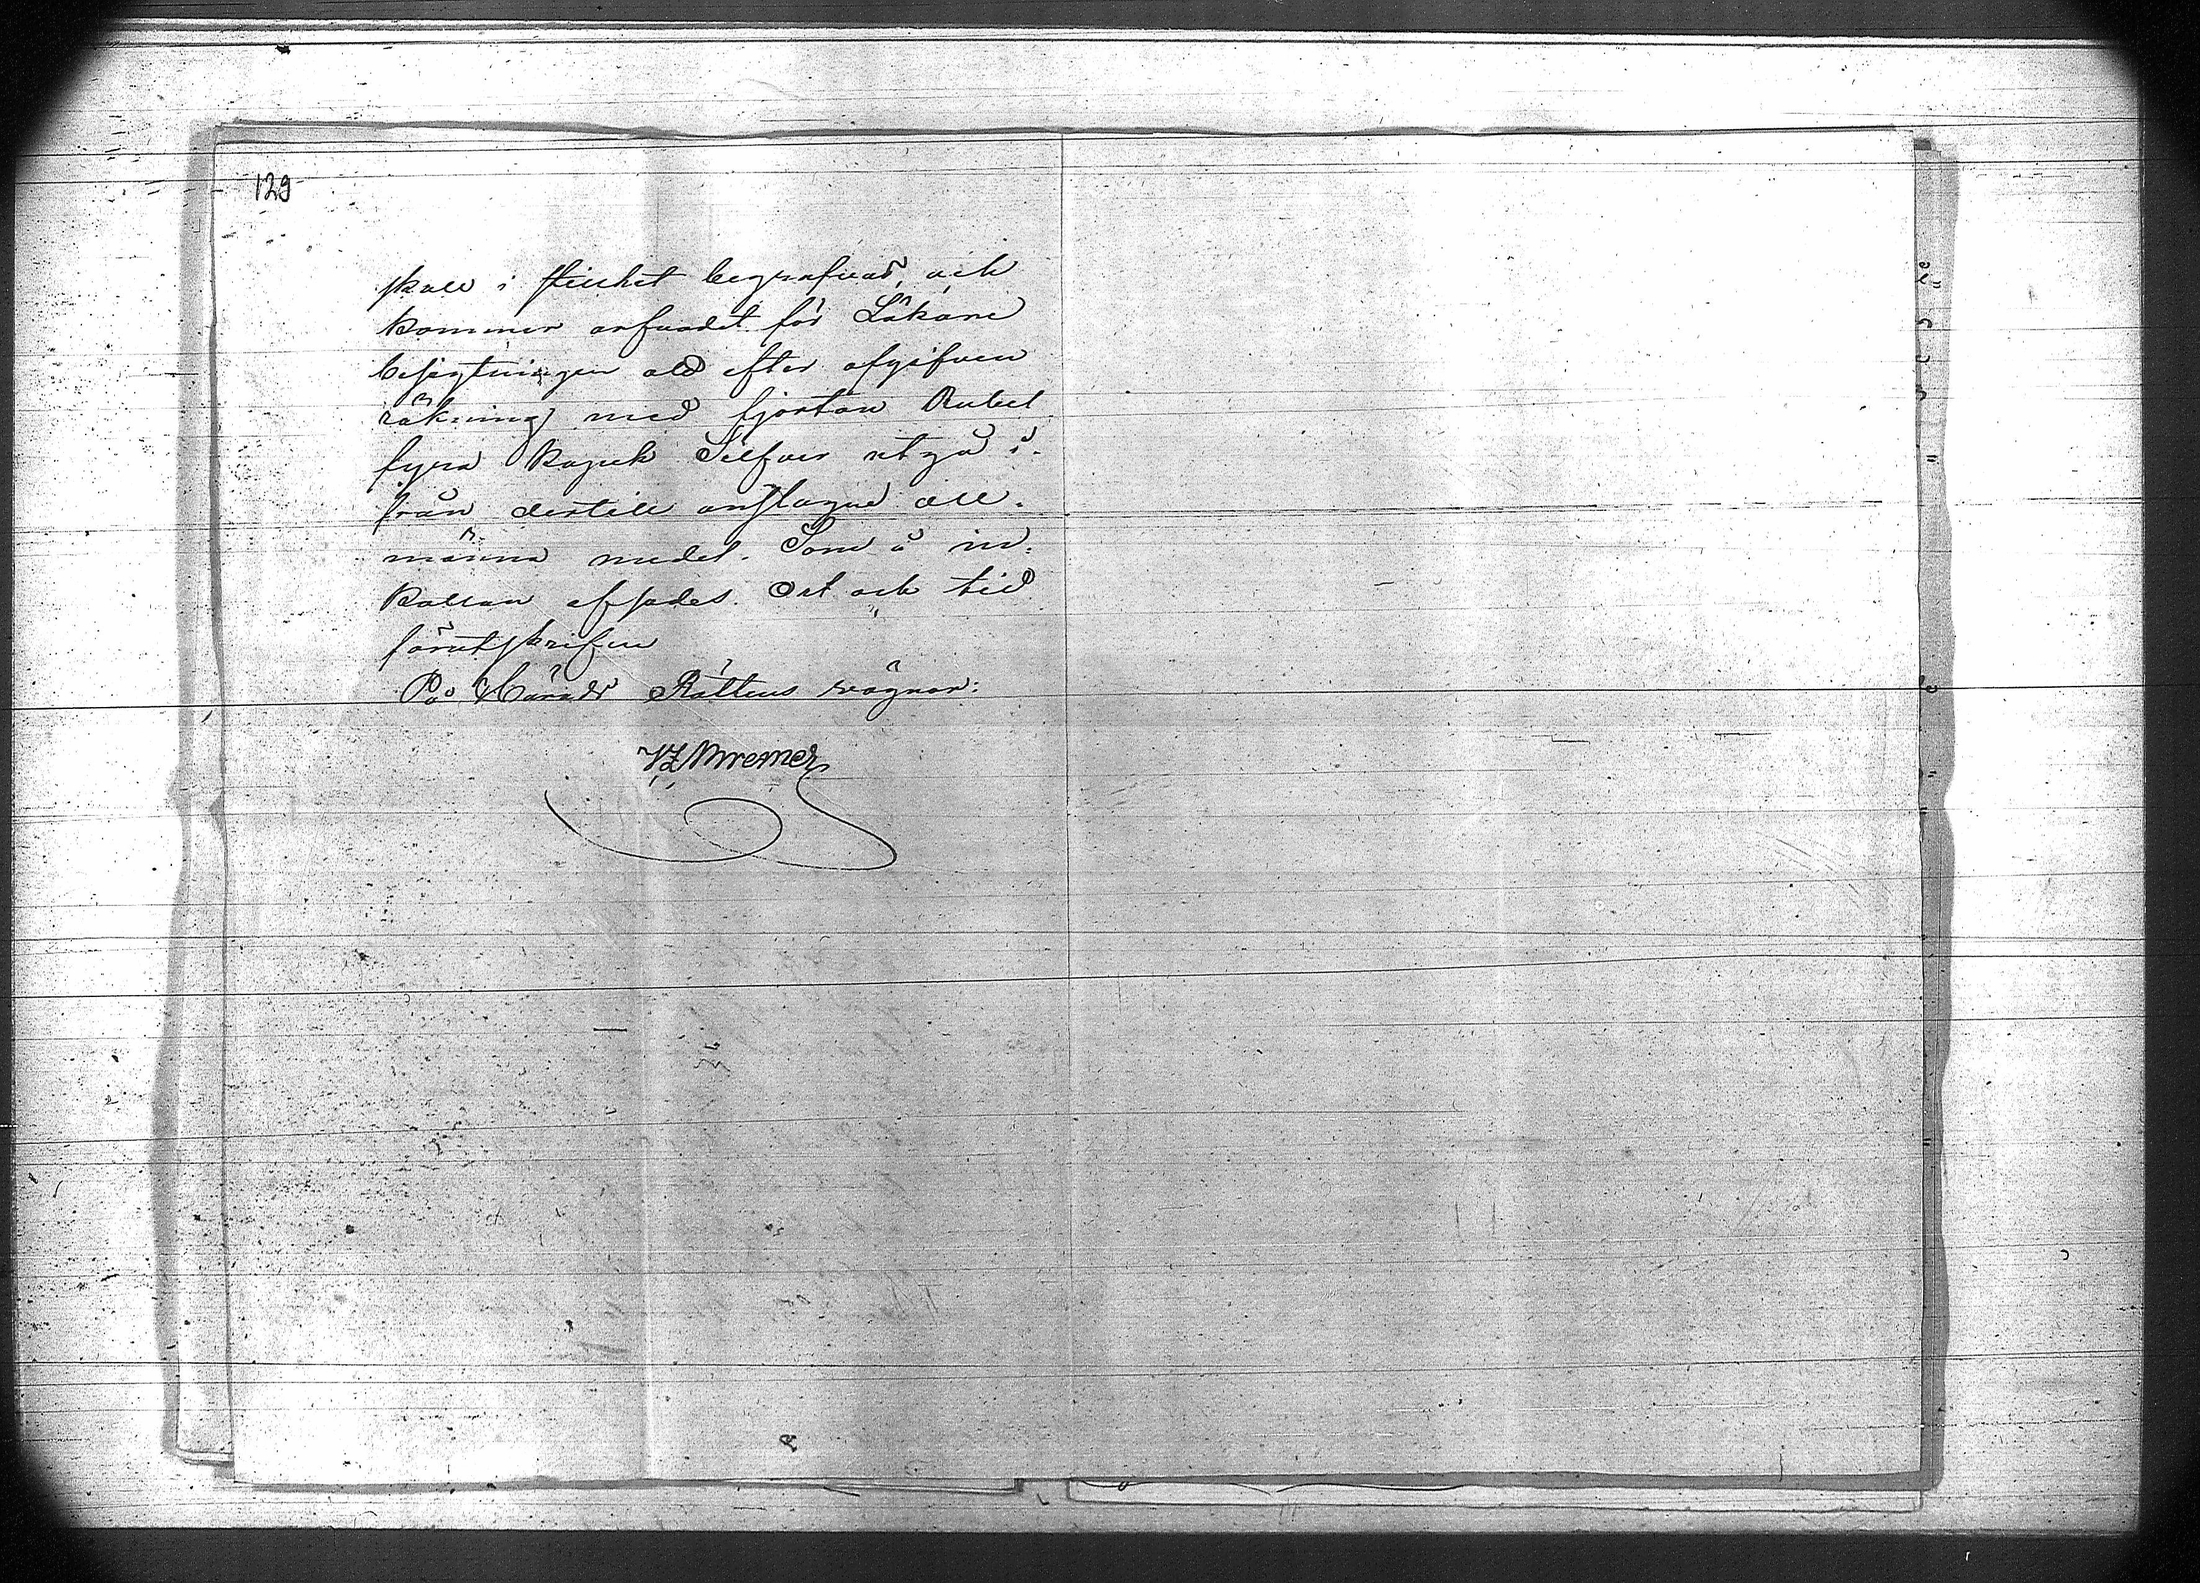 129
skall i stillhet begrafvas, och
kommer arfvodet för Läkare
besigtningen att efter afgifven
räkning med fjorton Rubel
fyra kopek Silfver utgå i-
från dertill anslagne all-
männa medel. Som å in-
kallan afsades. Ort och tid
förutskrifne
På Härads Rättens vägnar: